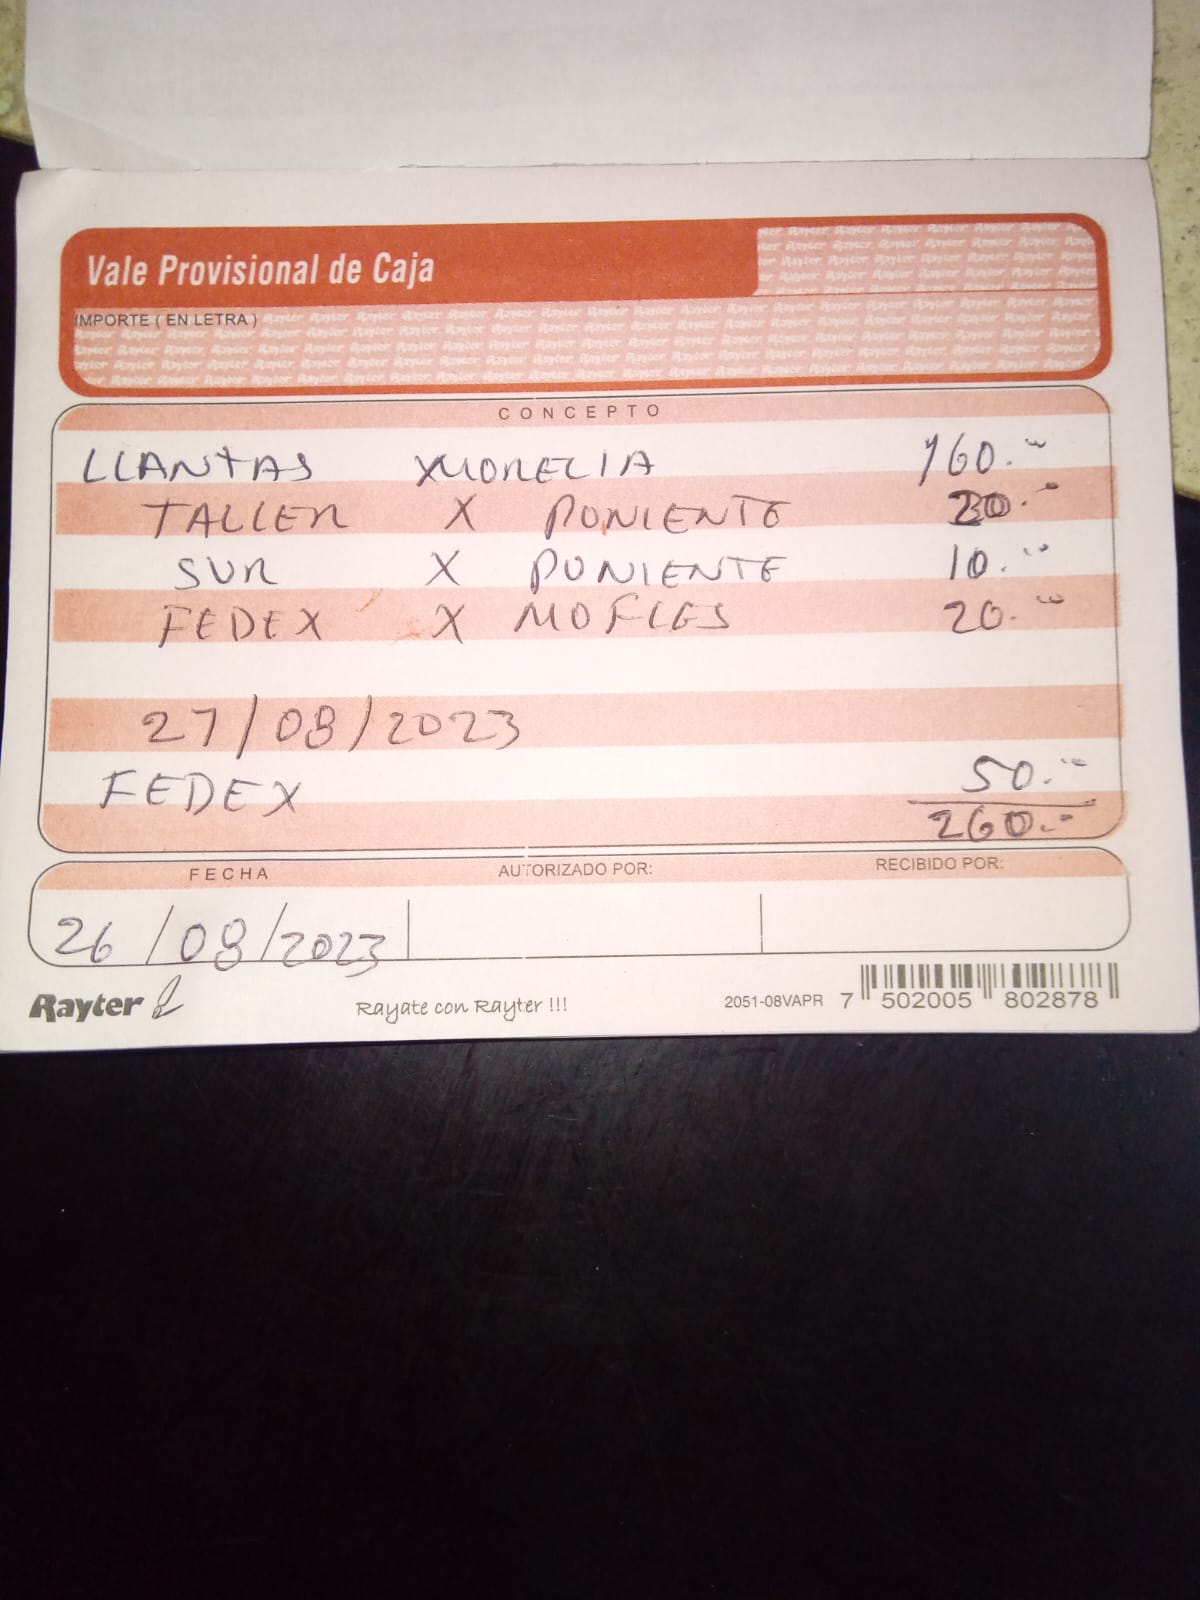 Vale Provisional de Caja
IMPORTE ( EN LETRA )
CONCEPTO
LLANTAS XMORELIA 160.00
TALLER X PONIENTE 20.00
SUR X PONIENTE 10.00
FEDEX X MOFLES 20.00
27/08/2023
FEDEX 50.00
260.00
FECHA AUTORIZADO POR: RECIBIDO POR:
26/08/2023
Rayter Rayate con Rayter !!! 2051-08VAPR 7 502005 802878